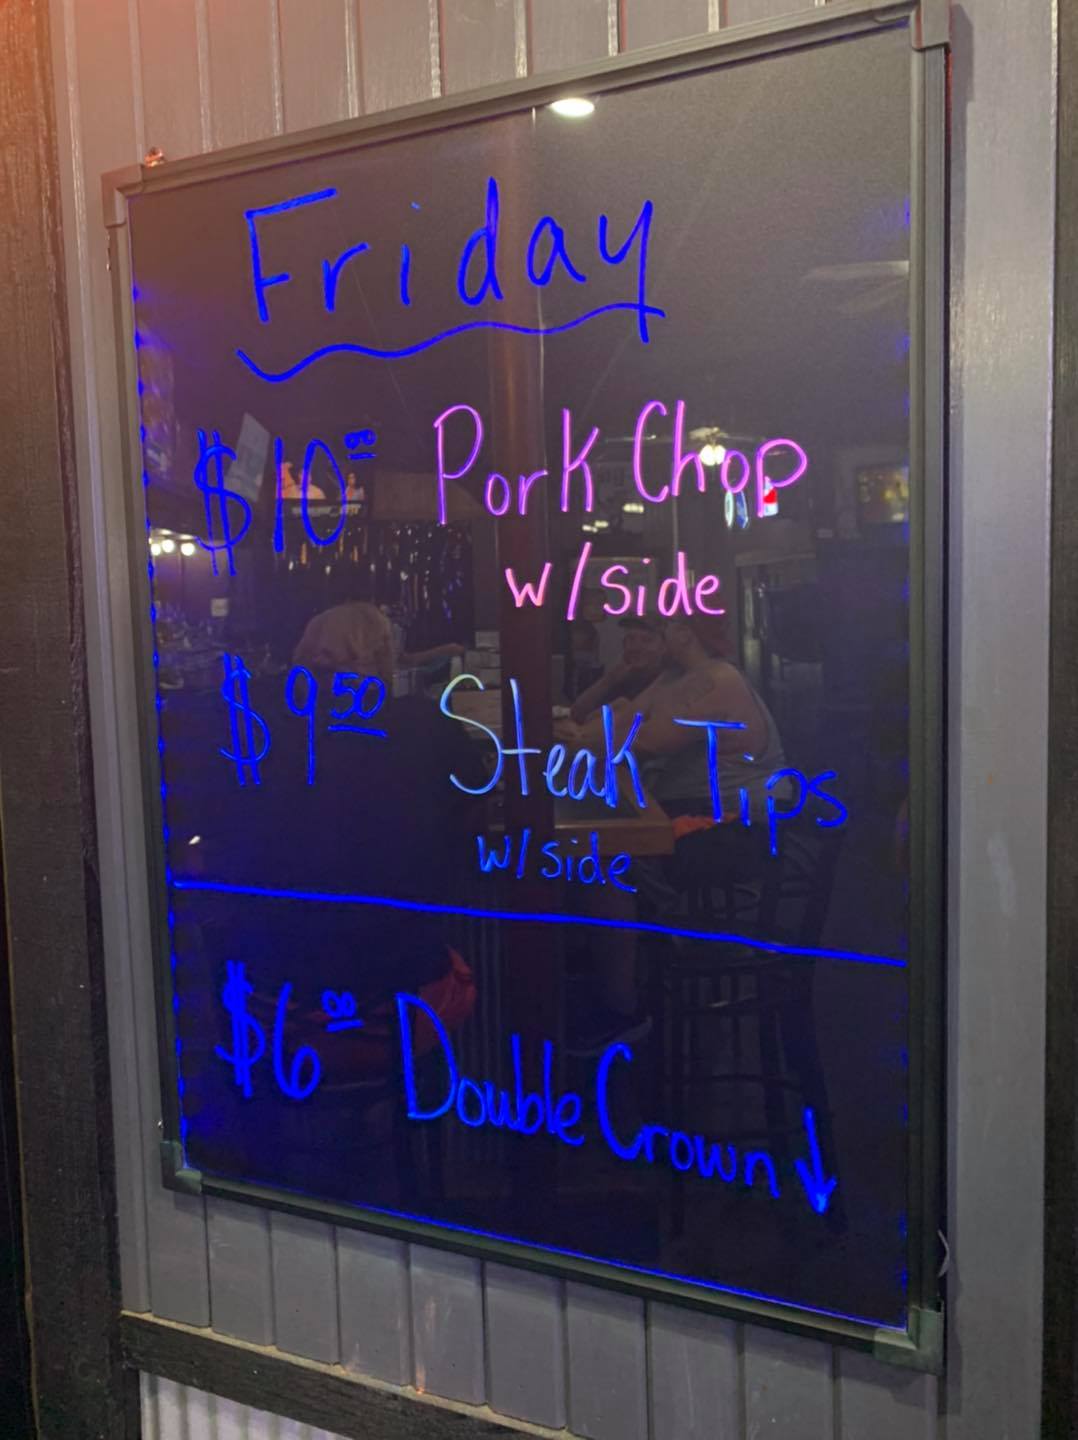 Friday
$10.00 Pork Chop
w/side
$9.50 Steak Tips
w/side
$6.00 Double Crown ↓